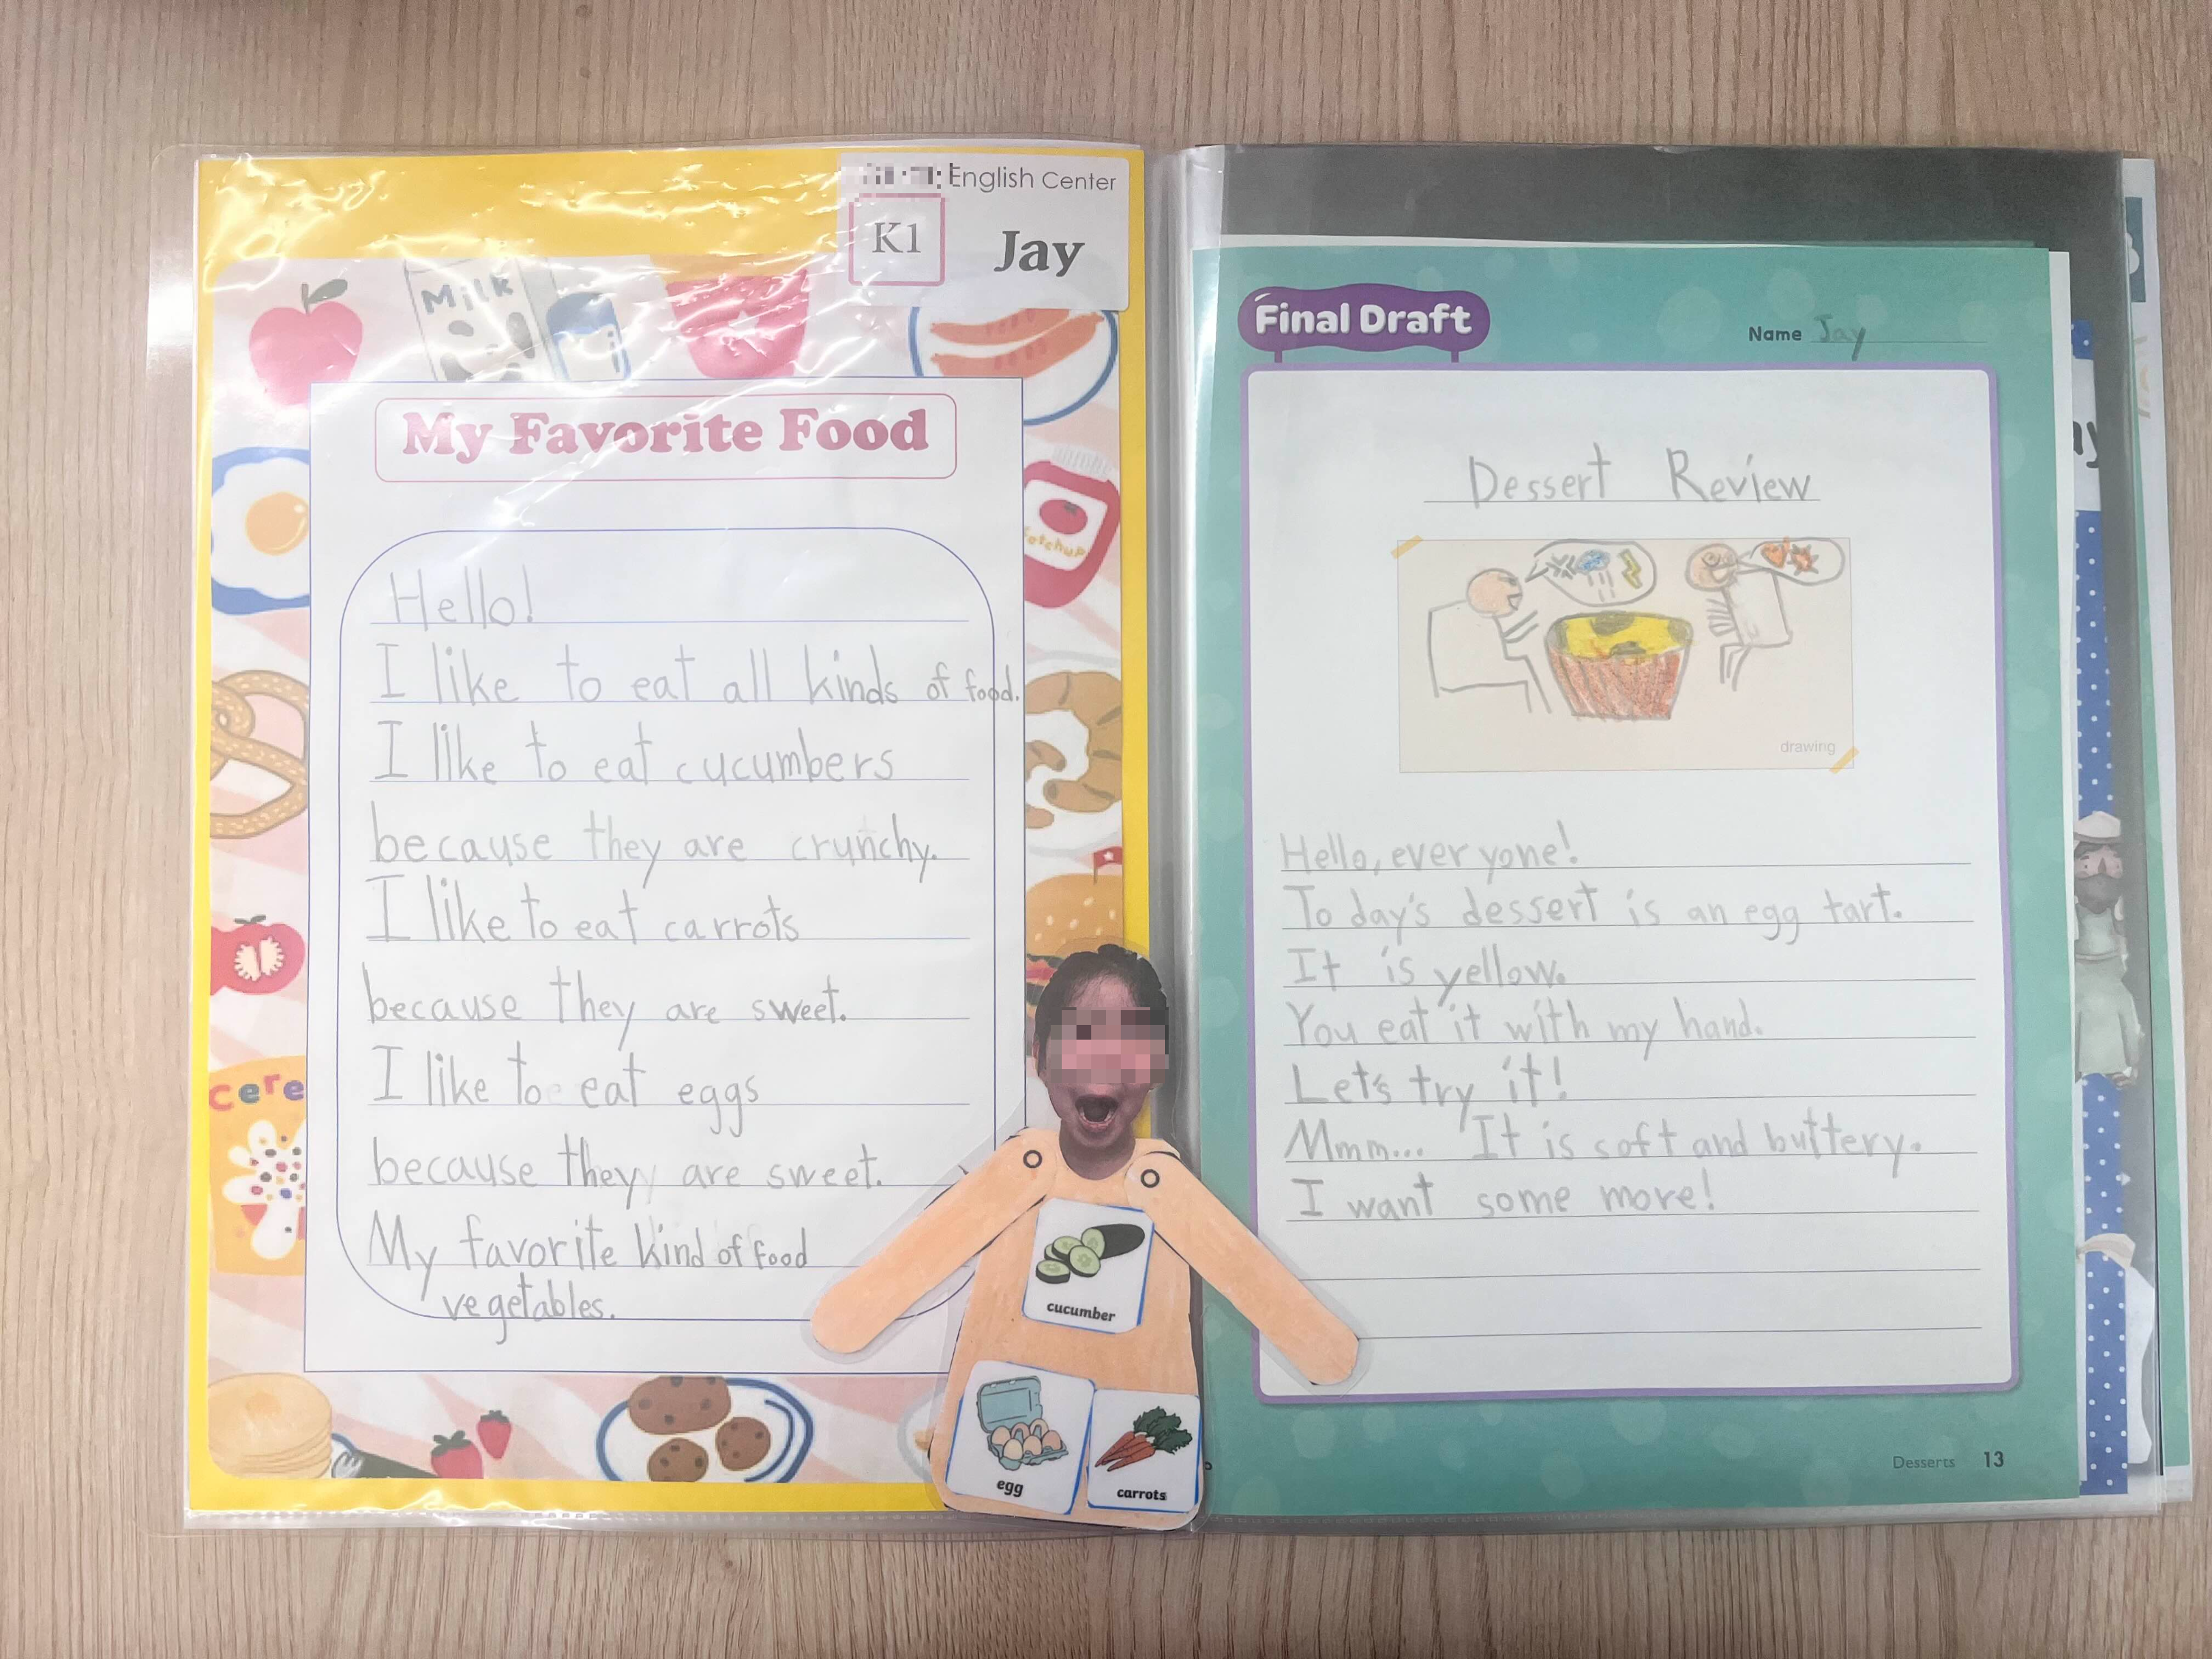 English Center
K1
Jay
Milk
My Favorite Food
ketchup
Hello!
I like to eat all kinds of food.
I like to eat cucumbers
because they are crunchy.
I like to eat carrots
because they are sweet.
I like to eat eggs
because they are sweet.
My favorite kind of food
vegetables.
Cere
cucumber
egg
carrots
Final Draft
Name Jay
Dessert Review
drawing
Hello, everyone!
Today's dessert is an egg tart.
It is yellow.
You eat it with my hand.
Let's try it!
Mmm... It is soft and buttery.
I want some more!
Desserts 13